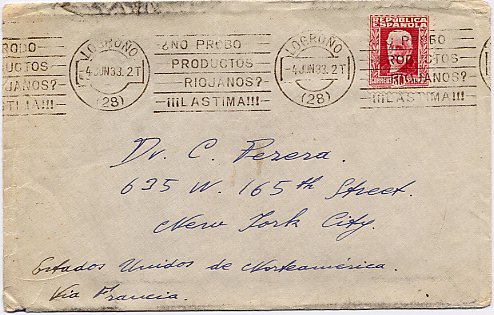 RODO
DUCTOS
OJANOS?
ASTIMA!!!
LOGROÑO
4 JUN 33. 2T
(28)
¿NO PROBO
PRODUCTOS
RIOJANOS?
¡¡¡LASTIMA!!!
LOGROÑO
4 JUN 33. 2T
(28)
REPUBLICA
ESPAÑOLA
PROBO
PRODUCTOS
RIOJANOS?
¡¡¡LASTIMA!!!
Dr. C. Perera.
635 W. 165th Street.
New York City.
Estados Unidos de Norteamérica.
Via Francia.